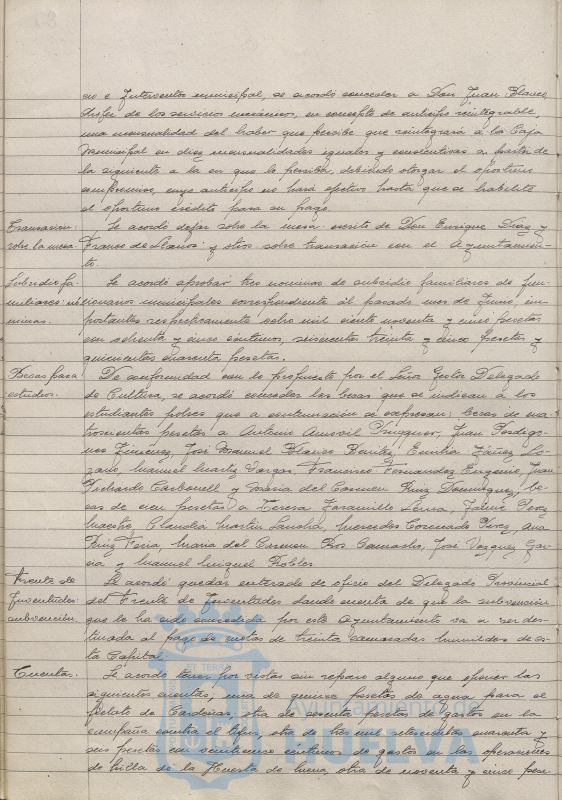 rio e Interventor municipal, se acordó conceder a Don Juan Blanco
Jefer de los servicios mecánicos, en concepto de anticipo reintegrable,
una mensualidad del haber que percibe que reintegrará a la Caja
Municipal en diez mensualidades iguales y consecutivas a partir de
la siguiente a la en que la perciba, debiendo otorgar el oportuno
compromiso, cuyo anticipo no hará efectivo hasta que se habilite
el oportuno crédito para su pago.
Transacion:
sobre la mesa
Se acordó dejar sobre la mesa escrito de Don Enrique Diaz y
Franco de Llanos y otros sobre transación con el Ayuntamien-
to.
Subsidio fa-
miliares: nó-
minas.
Se acordó aprobar tres nominas de subsidio familiares de fun-
cionarios municipales correspondiente al pasado mes de Junio, im-
portantes respectivamente ocho mil ciento noventa y cinco pesetas
con ochenta y cinco centimos, seiscientas treinta y cinco pesetas y
quinientas cuarenta pesetas.
Becas para
estudios.
De conformidad con lo propuesto por el Señor Gestor Delegado
de Cultura, se acordó conceder las becas que se indican a los
estudiantes pobres que a continuación se expresan: becas de cua-
trocientas pesetas a Antonio Juan
Jimenez, José Manuel Blanco Benitez, Emilia Yáñez Lo-
zano, Manuel Vargas, Francisco Fernandez Eugenio, Juan
Pichardo Carbonell y Maria del Carmen Ruiz Dominguez, be-
cas de cien pesetas a Teresa Jaramillo Jaime Perez
Macoto, Claudia Martin Sancha, Mercedes Coronado Perez, Ana
Ruiz Feria, Maria del Carmen Ros Camacho, José Vazquez Gar-
cia y Manuel Miguel Robles.
Frente de
Juventudes:
subvención
Se acordó quedar enterado de oficio del Delegado Provincial
del Frente de Juventudes dando cuenta de que la subvención
que le ha sido concedida por este Ayuntamiento va a ser des-
tinada al pago de cuotas de treinta camaradas humildes de es-
ta Capital.
Cuentas.
Se acordó tener por vistas sin reparo alguno que oponer las
siguientes cuentas; una de quince pesetas de agua para el
fielato de Cardeñas, otra de sesenta pesetas de gastos en la
campaña contra el tifus, otra de tres mil setecientas cuarenta y
seis pesetas con veintinueve céntimos de gastos en las operaciones
de trilla de la Huerta de Mena, otra de noventa y cinco pese-
Ayuntamiento de
HUELVA